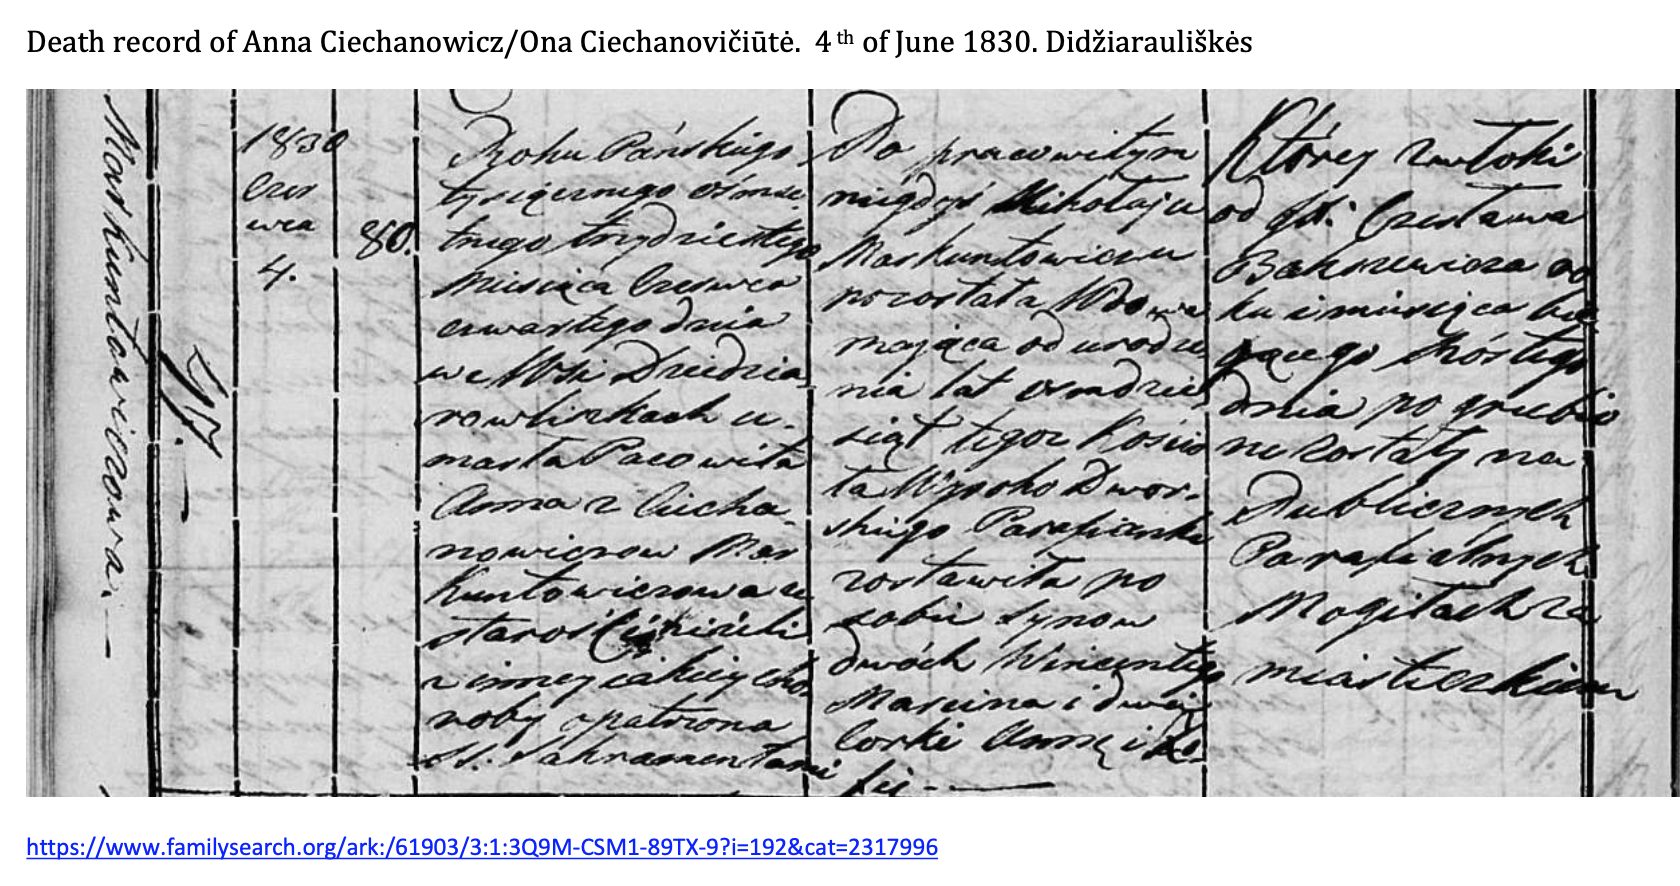 Death record of Anna Ciechanowicz/Ona Ciechanovičiūtė. 4th of June 1830. Didžiarauliškės
Moskuntowiczowa.—
47.
1830
Czer
wca
4.
80.
Roku Pańskiego
tysiącznego ośmse
tnego trzydziestego
Miesiąca Czerwca
czwartego dnia
we Wsi Dziedzia
rowliszkach u-
marła Pacowita
Anna z Ciecha-
nowiczow Mos
kuntowiczowa ze
starości
z inney iakiey cho
roby opatrzona
SS. Sakramentami
Po pracowitym
niegdyś Mikołaju
Moskuntowiczu
pozostała Wdowa
mająca od urodze
nia lat ośmdzie
siąt tegoż Koście
ła Wysoko Dwor-
skiego Parafianka
zostawiła po
sobie synow
dwóch Wincentego
Marcina i dwie
Corki Annę i
Którey zwłoki
od Czesława
ro
ku i miesiąca bie
żącego szóstego
dnia po grzebio
ne zostały na
Publicznych
Parafialnych
Mogiłach za
miasteczkiem
https://www.familysearch.org/ark:/61903/3:1:3Q9M-CSM1-89TX-9?i=192&cat=2317996